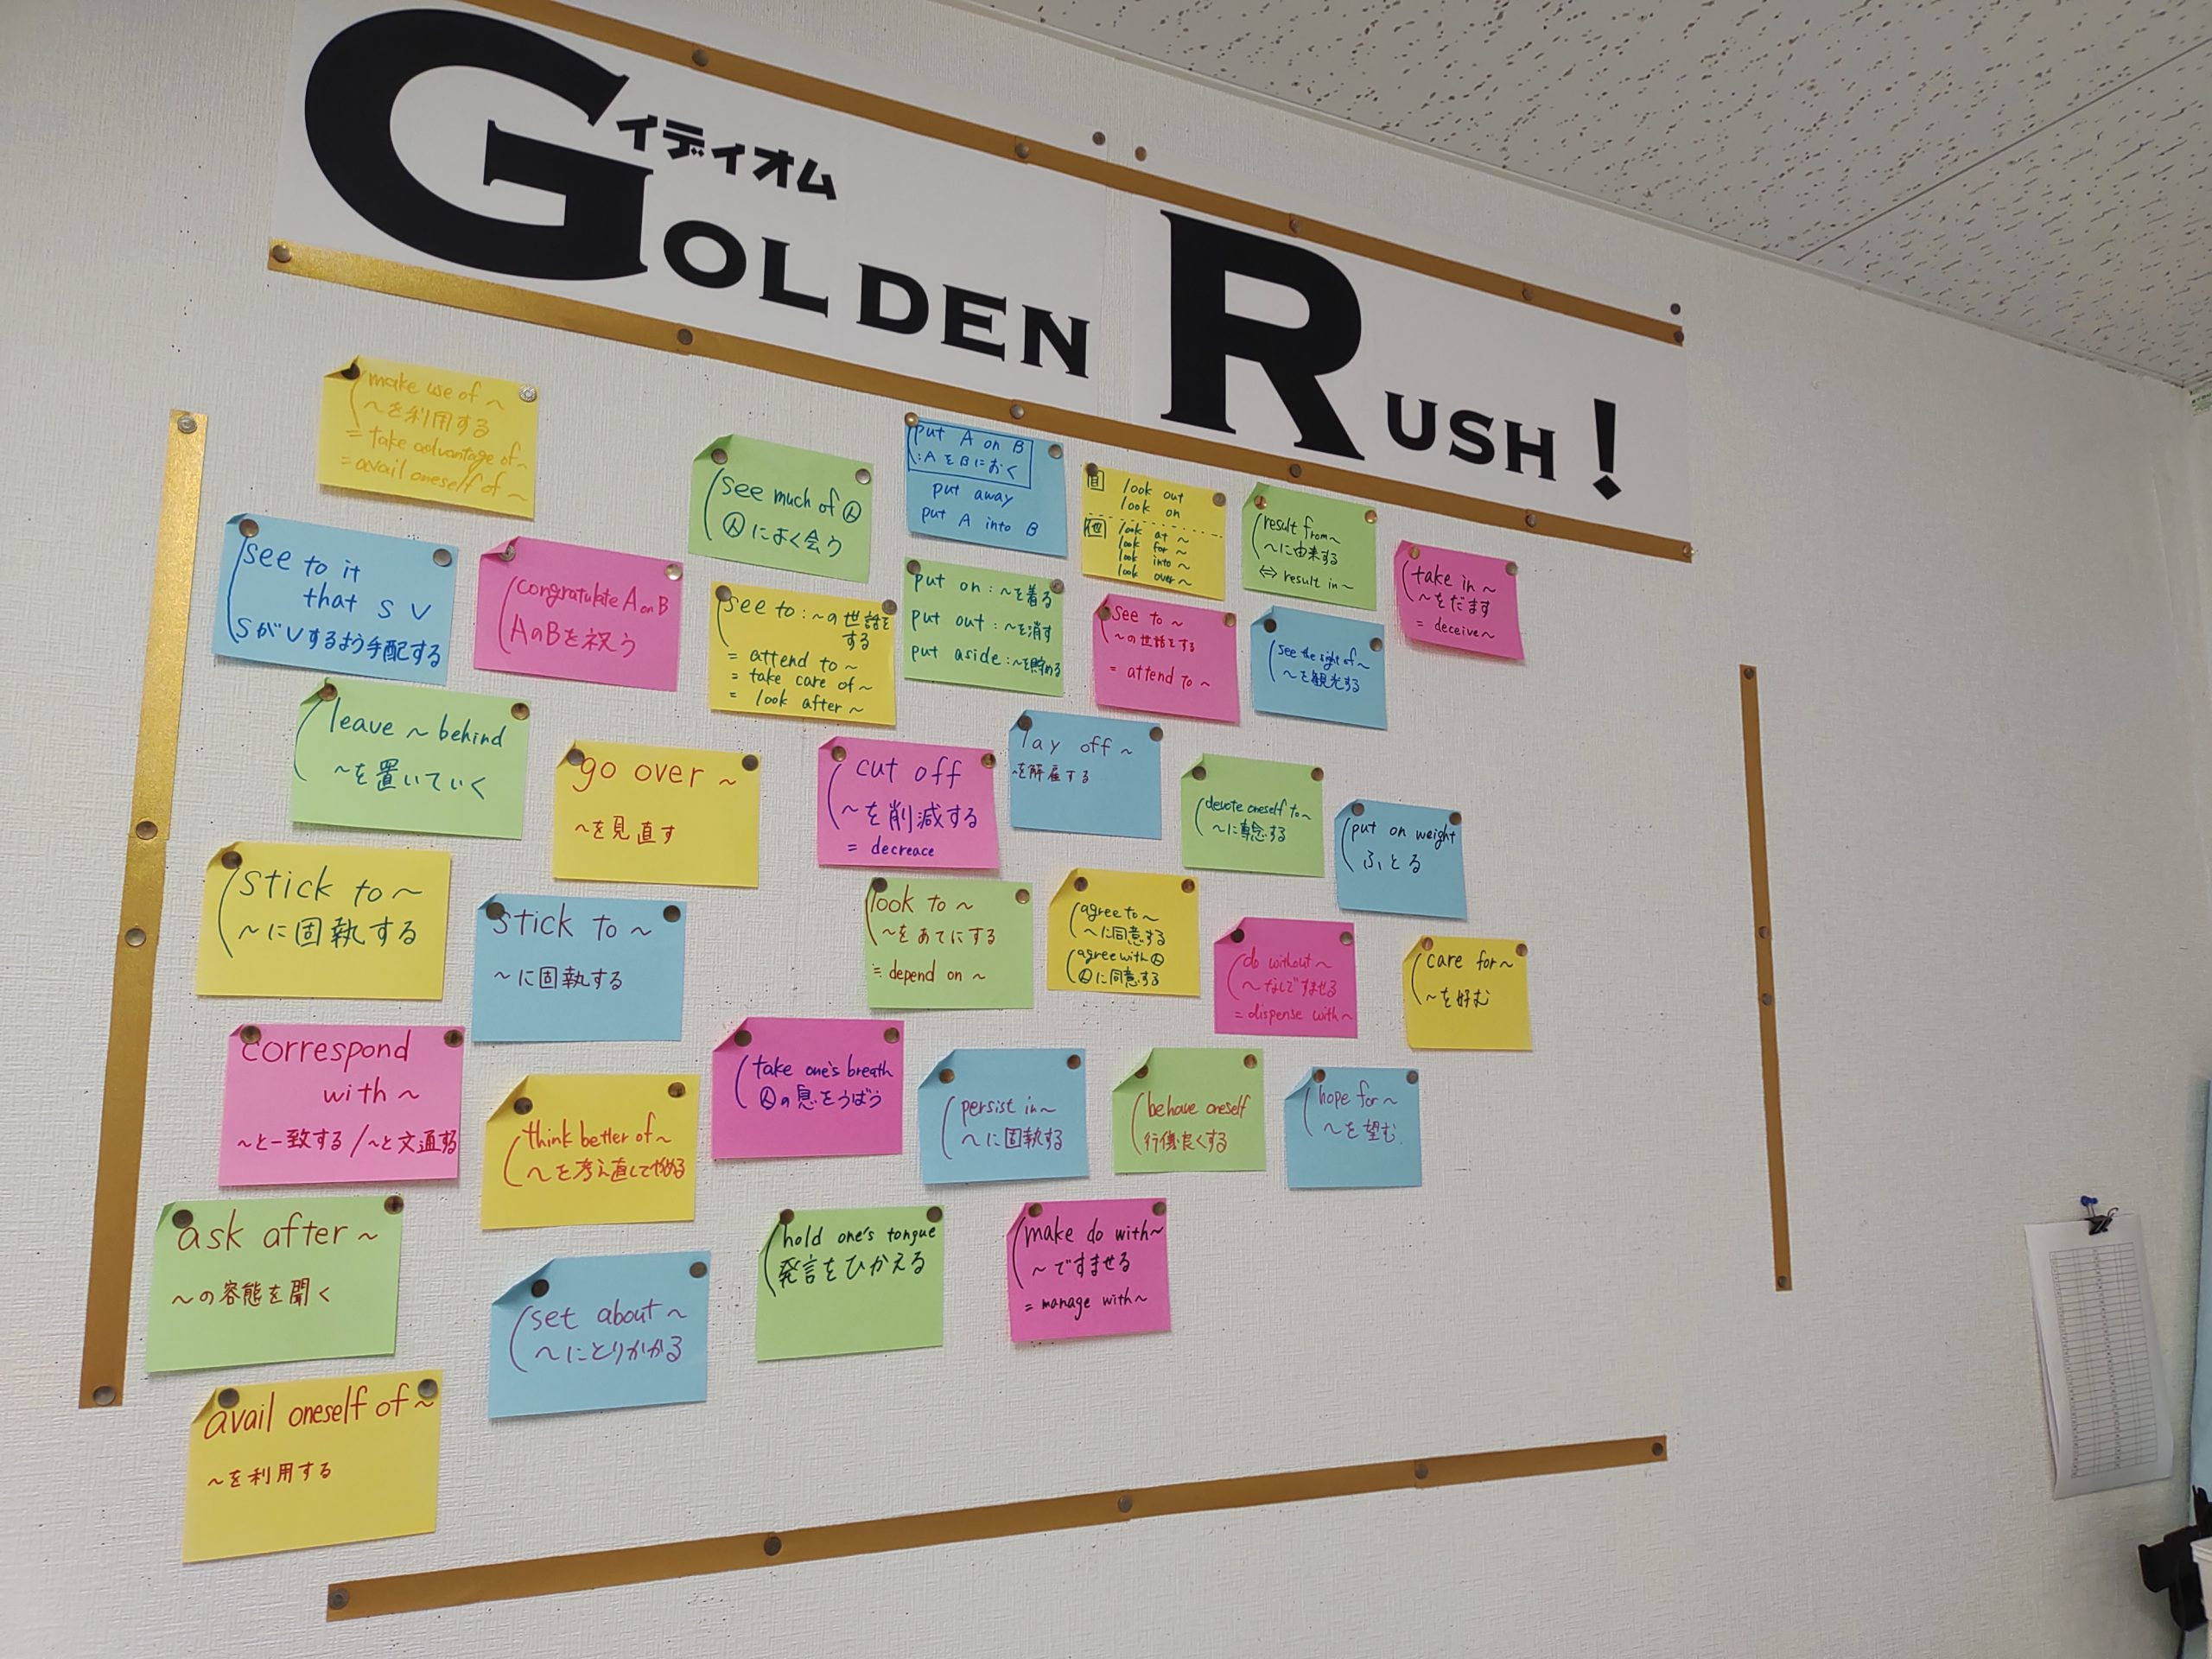 イディオム
GOLDEN RUSH!
make use of ~
~を利用する
= take advantage of~
= avail oneself of ~
see much of 人
人によく会う
put A on B
:AをBにおく
put away
put A into B
自 look out
look on
他 look at ~
look for ~
look into ~
look over ~
result from~
~に由来する
⇔ result in~
take in ~
~をだます
= deceive~
see to it
that S V
SがVするよう手配する
congratulate A on B
AのBを祝う
see to:~の世話を
する
= attend to ~
= take care of ~
= look after ~
put on:~を着る
put out:~を消す
put aside:~を貯める
see to ~
~の世話をする
= attend to ~
see the sight of~
~を観光する
leave ~ behind
~を置いていく
go over ~
~を見直す
cut off
~を削減する
= decreace
lay off ~
~を解雇する
devote oneself to~
~に専念する
put on weight
ふとる
stick to ~
~に固執する
stick to ~
~に固執する
look to ~
~をあてにする
≒ depend on ~
agree to ~
~に同意する
agree with 人
人に同意する
do without ~
~なしですませる
= dispense with~
care for~
~を好む
correspond
with ~
~と一致する/~と文通する
think better of~
~を考え直してやめる
take one's breath
人の息をうばう
persist in~
~に固執する
behave oneself
行儀良くする
hope for ~
~を望む
ask after ~
~の容態を聞く
set about ~
~にとりかかる
hold one's tongue
発言をひかえる
make do with~
~ですませる
= manage with~
avail oneself of ~
~を利用する